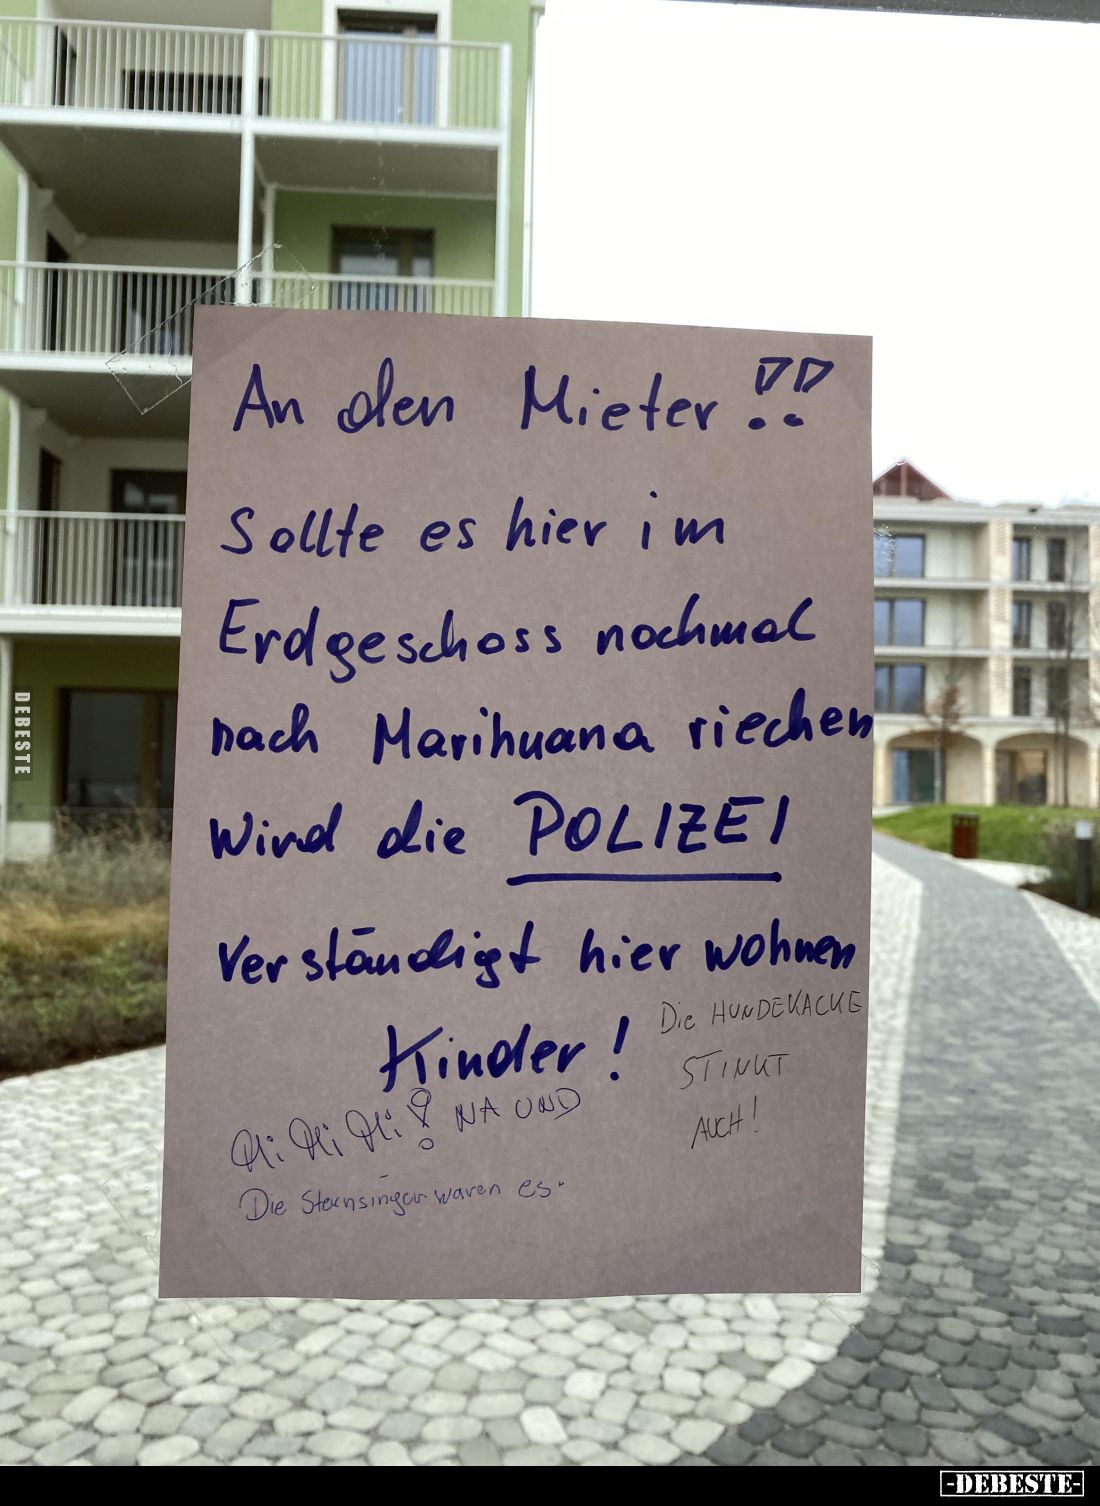 An den Mieter!!
Sollte es hier im
Erdgeschoss nochmal
nach Marihuana riechen
Wird die POLIZEI
verständigt hier wohnen
Kinder!
Die HUNDEKACKE
STINKT
AUCH!
Mi Mi Mi! NA UND
Die Sternsinger waren es.
DEBESTE
-DEBESTE-